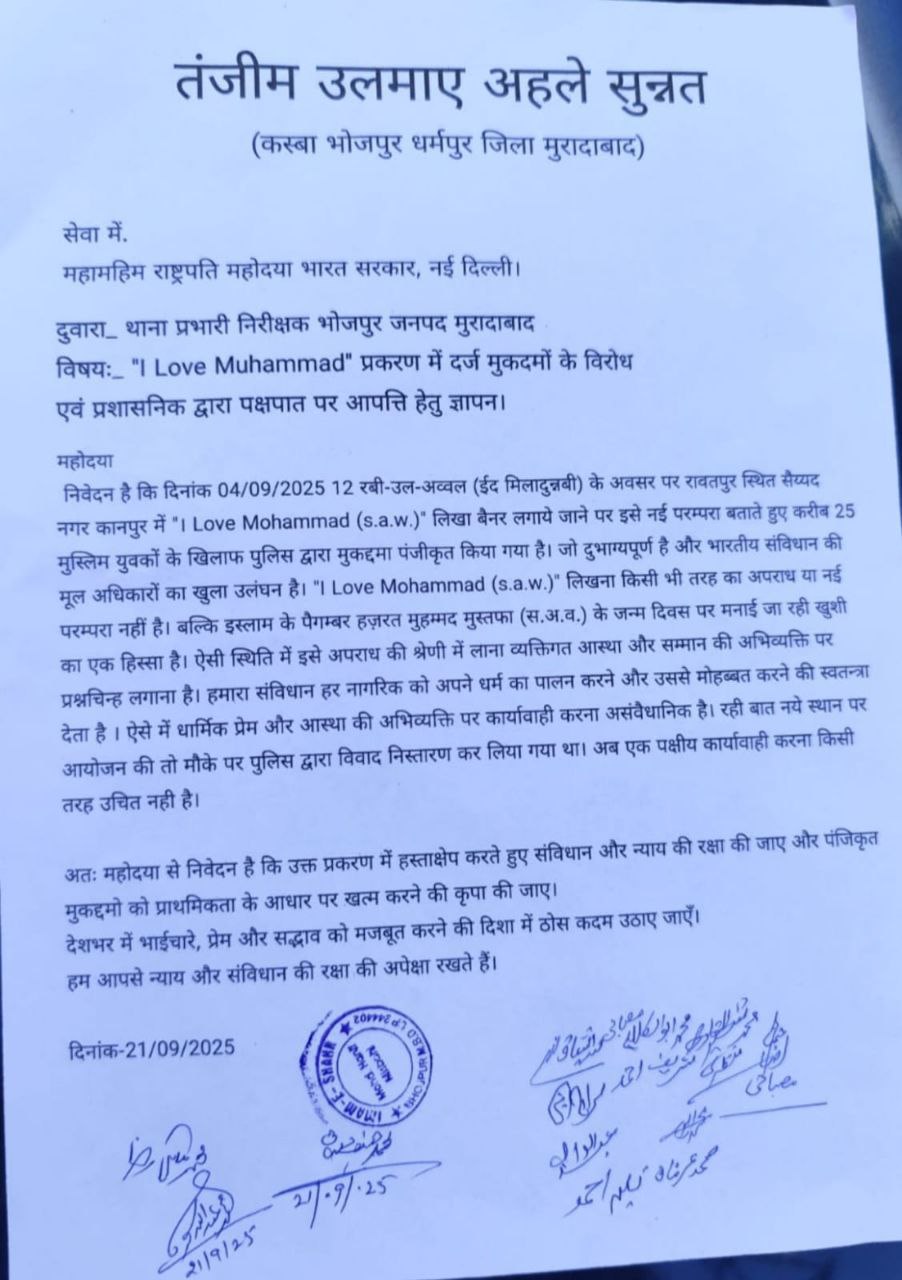 तंजीम उलमाए अहले सुन्नत
(कस्बा भोजपुर धर्मपुर जिला मुरादाबाद)
सेवा में.
महामहिम राष्ट्रपति महोदया भारत सरकार, नई दिल्ली।
दुवारा_ थाना प्रभारी निरीक्षक भोजपुर जनपद मुरादाबाद
विषयः_ "I Love Muhammad" प्रकरण में दर्ज मुकदमों के विरोध
एवं प्रशासनिक द्वारा पक्षपात पर आपत्ति हेतु ज्ञापन।
महोदया
निवेदन है कि दिनांक 04/09/2025 12 रबी-उल-अव्वल (ईद मिलादुन्नबी) के अवसर पर रावतपुर स्थित सैय्यद
नगर कानपुर में "I Love Mohammad (s.a.w.)" लिखा बैनर लगाये जाने पर इसे नई परम्परा बताते हुए करीब 25
मुस्लिम युवकों के खिलाफ पुलिस द्वारा मुकद्दमा पंजीकृत किया गया है। जो दुभाग्यपूर्ण है और भारतीय संविधान की
मूल अधिकारों का खुला उलंघन है। "I Love Mohammad (s.a.w.)" लिखना किसी भी तरह का अपराध या नई
परम्परा नहीं है। बल्कि इस्लाम के पैगम्बर हज़रत मुहम्मद मुस्तफा (स.अ.व.) के जन्म दिवस पर मनाई जा रही खुशी
का एक हिस्सा है। ऐसी स्थिति में इसे अपराध की श्रेणी में लाना व्यक्तिगत आस्था और सम्मान की अभिव्यक्ति पर
प्रश्नचिन्ह लगाना है। हमारा संविधान हर नागरिक को अपने धर्म का पालन करने और उससे मोहब्बत करने की स्वतन्त्रा
देता है । ऐसे में धार्मिक प्रेम और आस्था की अभिव्यक्ति पर कार्यावाही करना असंवैधानिक है। रही बात नये स्थान पर
आयोजन की तो मौके पर पुलिस द्वारा विवाद निस्तारण कर लिया गया था। अब एक पक्षीय कार्यावाही करना किसी
तरह उचित नही है।
अतः महोदया से निवेदन है कि उक्त प्रकरण में हस्ताक्षेप करते हुए संविधान और न्याय की रक्षा की जाए और पंजिकृत
मुकद्दमो को प्राथमिकता के आधार पर खत्म करने की कृपा की जाए।
देशभर में भाईचारे, प्रेम और सद्भाव को मजबूत करने की दिशा में ठोस कदम उठाए जाएँ।
हम आपसे न्याय और संविधान की रक्षा की अपेक्षा रखते हैं।
दिनांक-21/09/2025
IMAM-E-SHAHR
244402
21/9/25
21/9/25